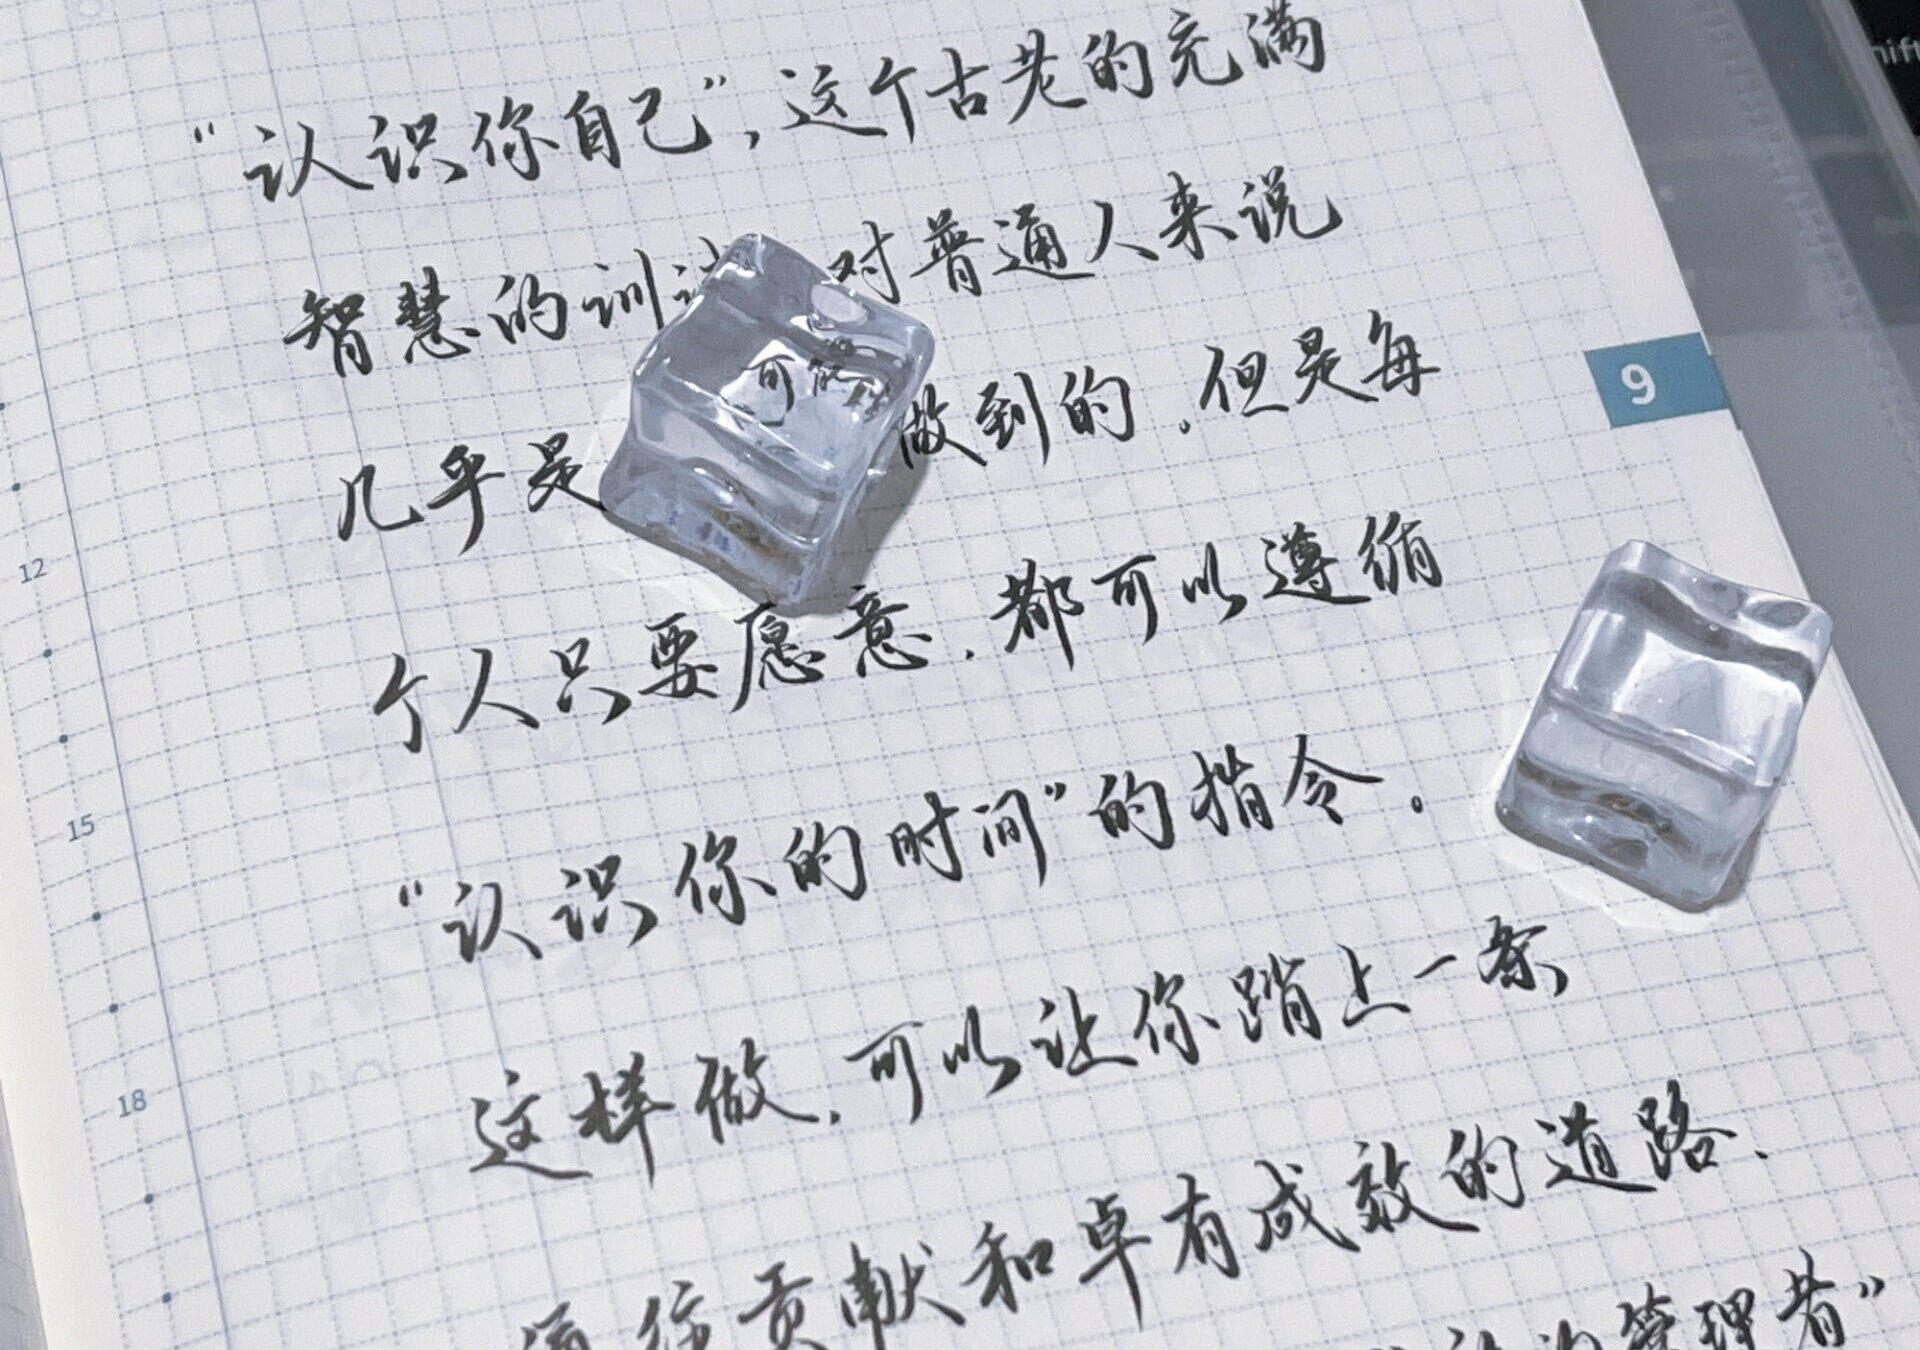 “认识你自己”，这个古老的充满
智慧的训 对普通人来说
几乎是 可能 做到的，但是每
个人只要愿意，都可以遵循
“认识你的时间”的指令。
这样做，可以让你踏上一条
通往贡献和卓有成效的道路，
管理者”
9
12
15
18